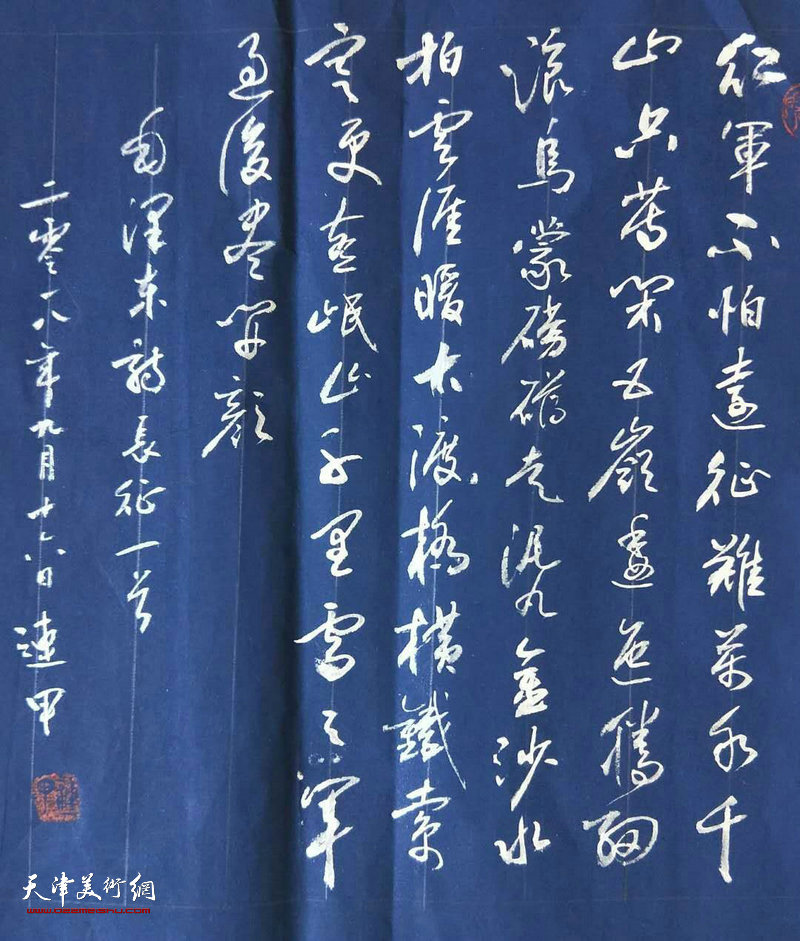 紅軍不怕遠征難萬水千
山只等閑五嶺逶迤騰細
浪烏蒙磅礴走泥丸金沙水
拍雲崖暖大渡橋橫鐵索
寒更喜岷山千里雪三軍
過後盡開顏
毛澤東詩長征一首
二零一八年九月十六日連甲
天津美術網